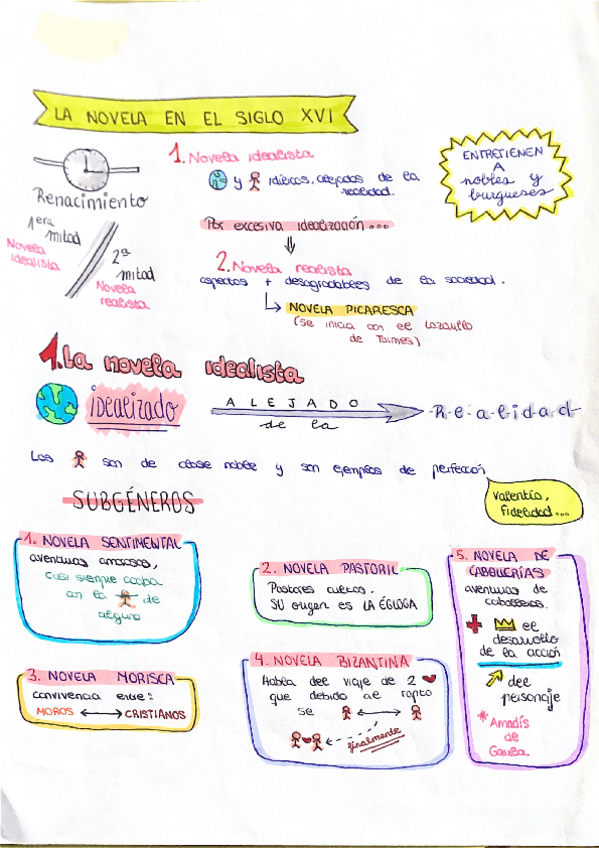 LA NOVELA EN EL SIGLO XVI
Renacimiento
1era
mitad
Novela
idealista
2ª
mitad
Novela
realista
1. Novela idealista
y idílicos, alejados de la
realidad.
Por excesiva idealización...
2. Novela realista
aspectos + desagradables de la sociedad.
NOVELA PICARESCA
(se inicia con el Lazarillo
de Tormes)
ENTRETIENEN
A
nobles y
burgueses
1. La novela idealista
idealizado
ALEJADO
de la
-R-e-a-l-i-d-a-d-
Los son de clase noble y son ejemplos de perfección
valentía,
fidelidad...
SUBGÉNEROS
1. NOVELA SENTIMENTAL
aventuras amorosas,
casi siempre acaba
en la de
alguno
2. NOVELA PASTORIL
Pastores cultos.
SU origen es LA ÉGLOGA
3. NOVELA MORISCA
convivencia entre:
MOROS CRISTIANOS
4. NOVELA BIZANTINA
Habla del viaje de 2
que debido al rapto
se
finalmente
5. NOVELA DE
CABALLERÍAS
aventuras de
caballeros.
+ el
desarrollo
de la acción
del
personaje
*Amadís
de
Gaula